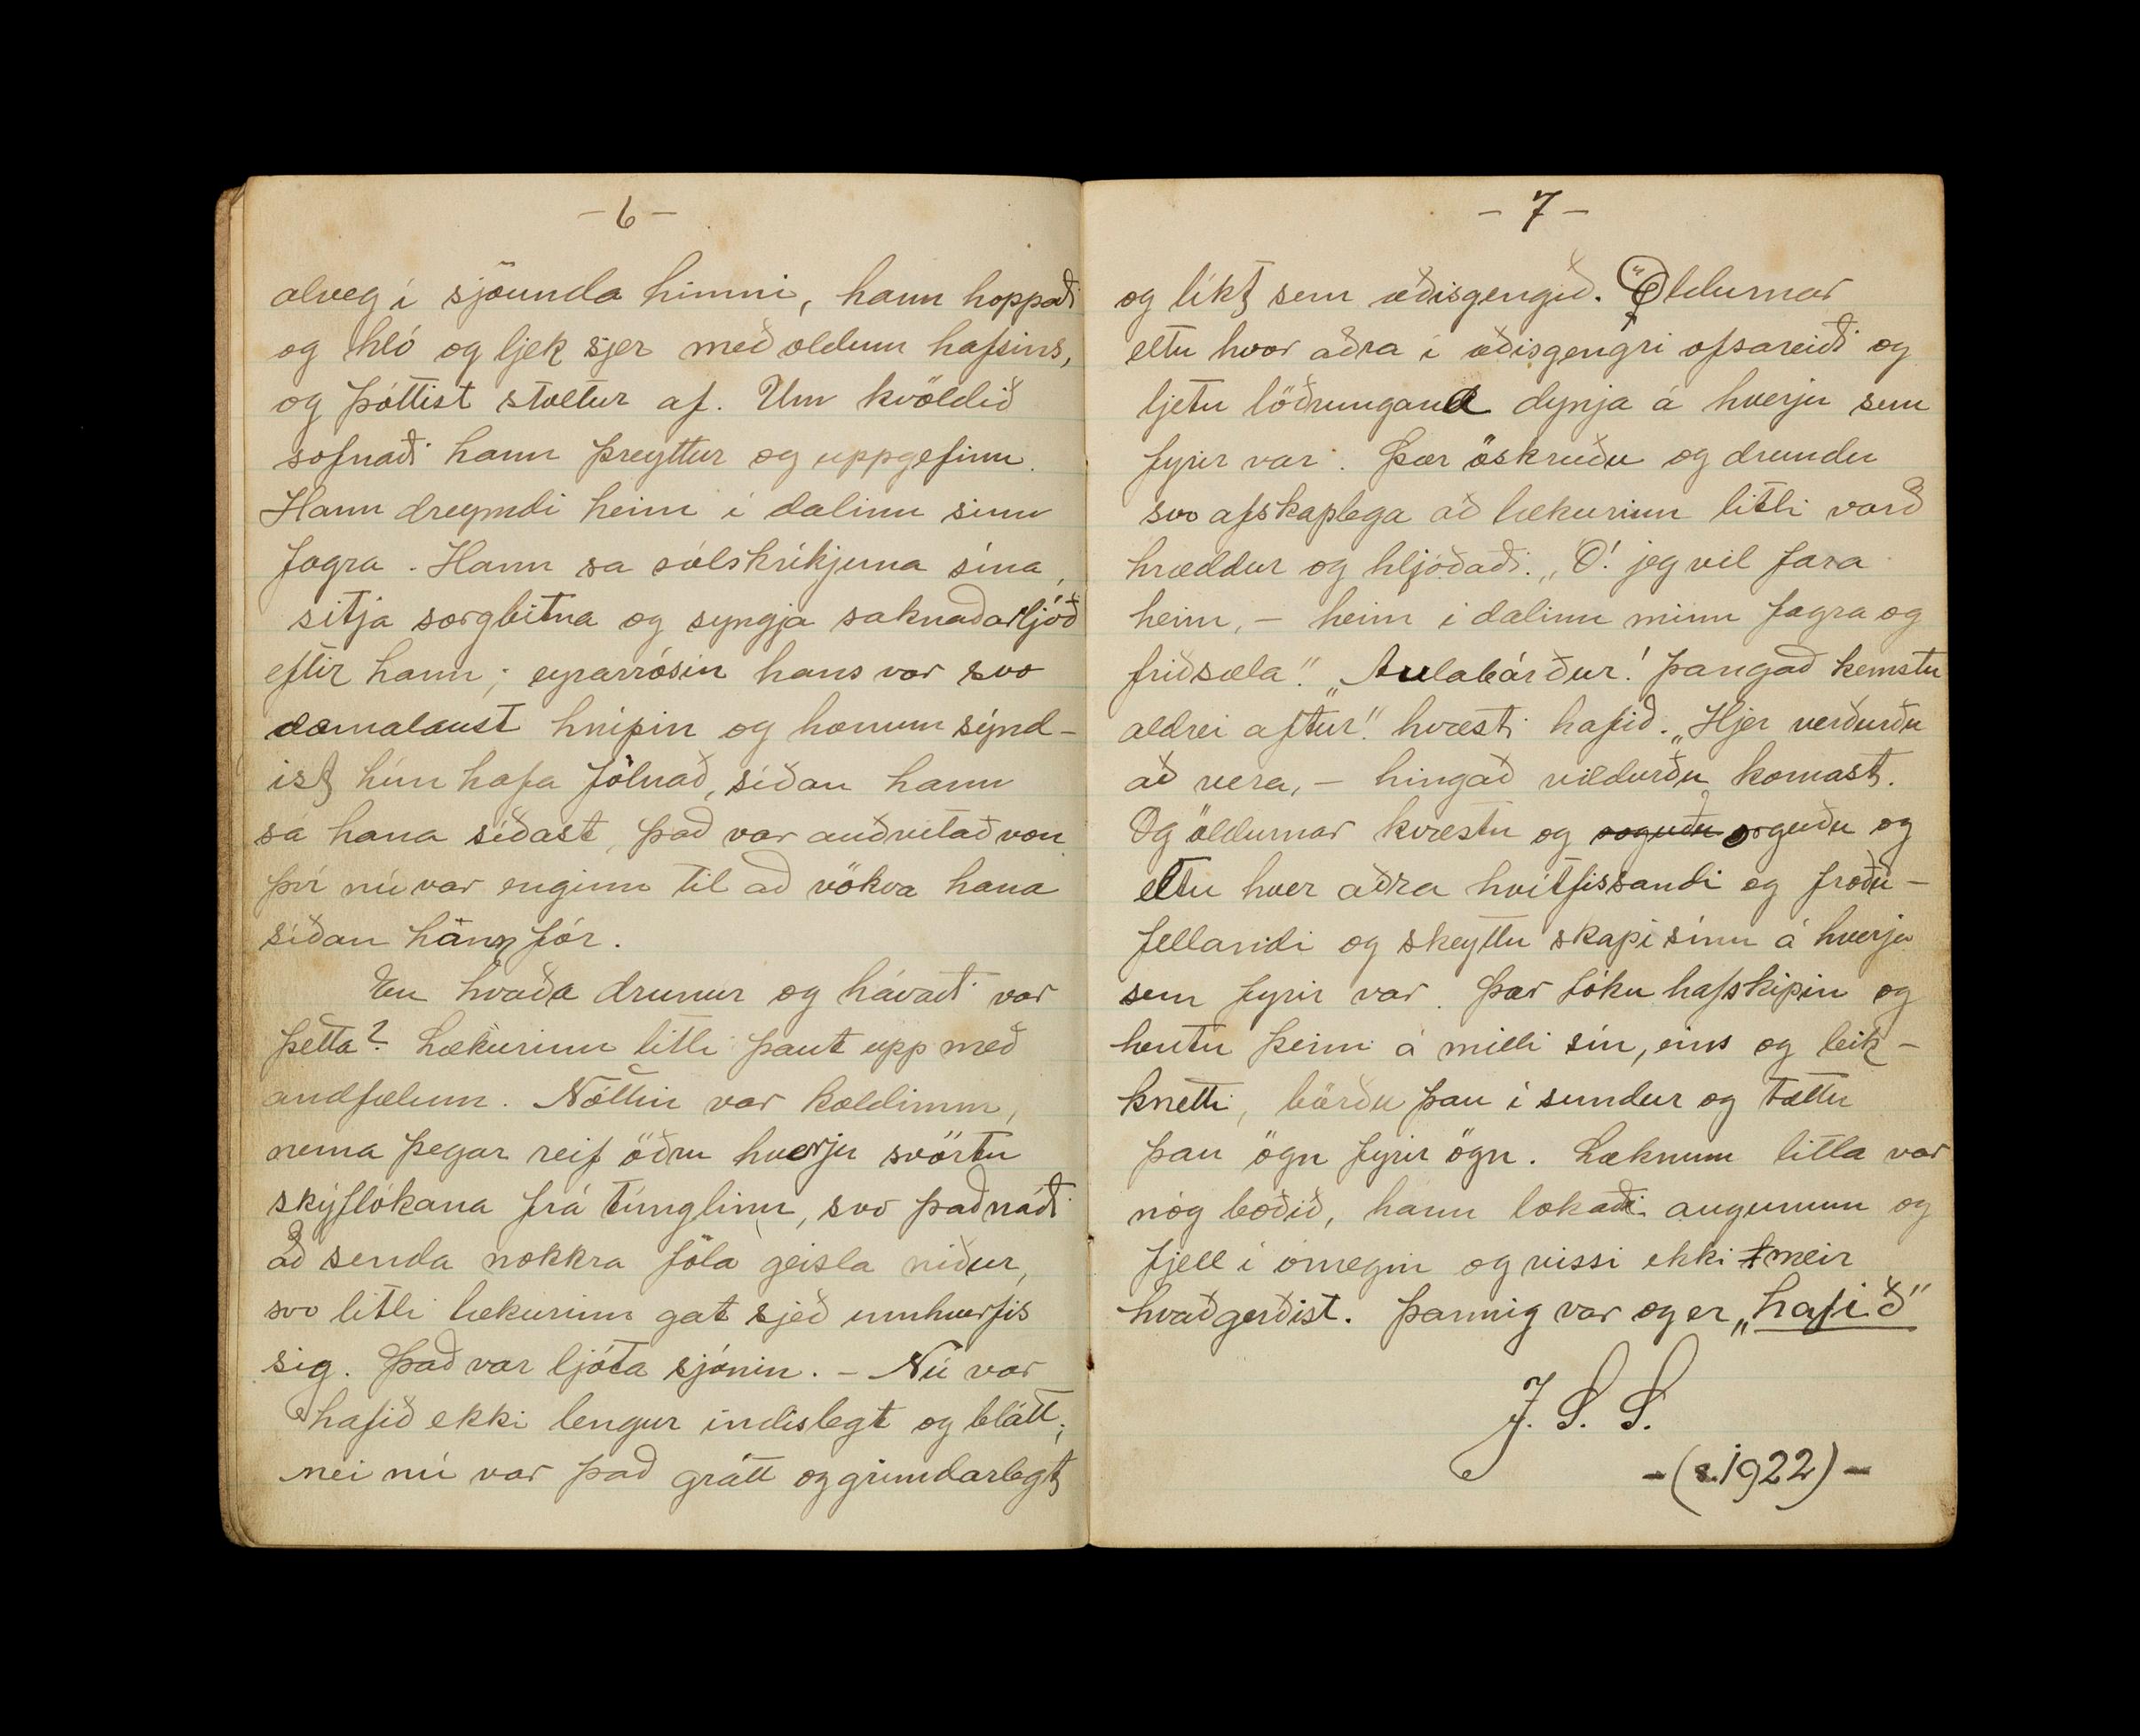 - 6 -
alveg í sjöunda himni, hann hoppaði
og hló og ljek sjer með öldum hafsins,
og þóttist stoltur af. Um kvöldið
sofnaði hann þreyttur og uppgefinn.
Hann dreymdi heim í dalinn sinn
fagra. Hann sa sólskríkjuna sína,
sitja sorgbitna og syngja saknaðarljóð
eftir hann; eyrarrósin hans var svo
damalaust hnípin og honum sýnd-
ist hún hafa fölnað, síðan hann
sá hana síðast, það var auðvitað von
því nú var enginn til að vökva hana
síðan hann fór.
En hvaða drunur og hávaði var
þetta? Lækurinn litli þaut upp með
andfælum. Nóttin var koldimm,
nema þegar reif öðru hverju svörtu
skýflókana frá túnglinu, svo það náði
að senda nokkra föla geisla niður,
svo litli lækurinn gat sjeð umhverfis
sig. Það var ljóta sjónin. - Nú var
hafið ekki lengur indislegt og blátt;
nei nú var það grátt og grimdarlegt
- 7 -
og líkt sem æðisgengið. Öldurnar
eltu hvor aðra í æðisgengri ofsareiði og
ljetu löðrungana dynja á hverju sem
fyrir var. Þær öskruðu og drundu
svo afskaplega að lækurinn litli varð
hræddur og hljóðaði. „Ó! jeg vil fara
heim, - heim í dalinn minn fagra og
friðsæla!" „Aulabárður! þangað kemstu
aldrei aftur!" hvæsti hafið. „Hjer verðurðu
að vera, - hingað vildurðu komast.
Og öldurnar hvæstu og soguðu orguðu og
eltu hver aðra hvítfissandi og froðu-
fellandi og skeyttu skapi sínu á hverju
sem fyrir var. Þær tóku hafskipin og
hentu þeim á milli sín, eins og leik-
knetti, börðu þau í sundur og tættu
þau ögn fyrir ögn. Læknum litla var
nóg boðið, hann lokaði augunum og
fjell í omegin og vissi ekki meir
hvað gerðist. Þannig var og er „hafið"
J. S. S.
- (s. 1922) -